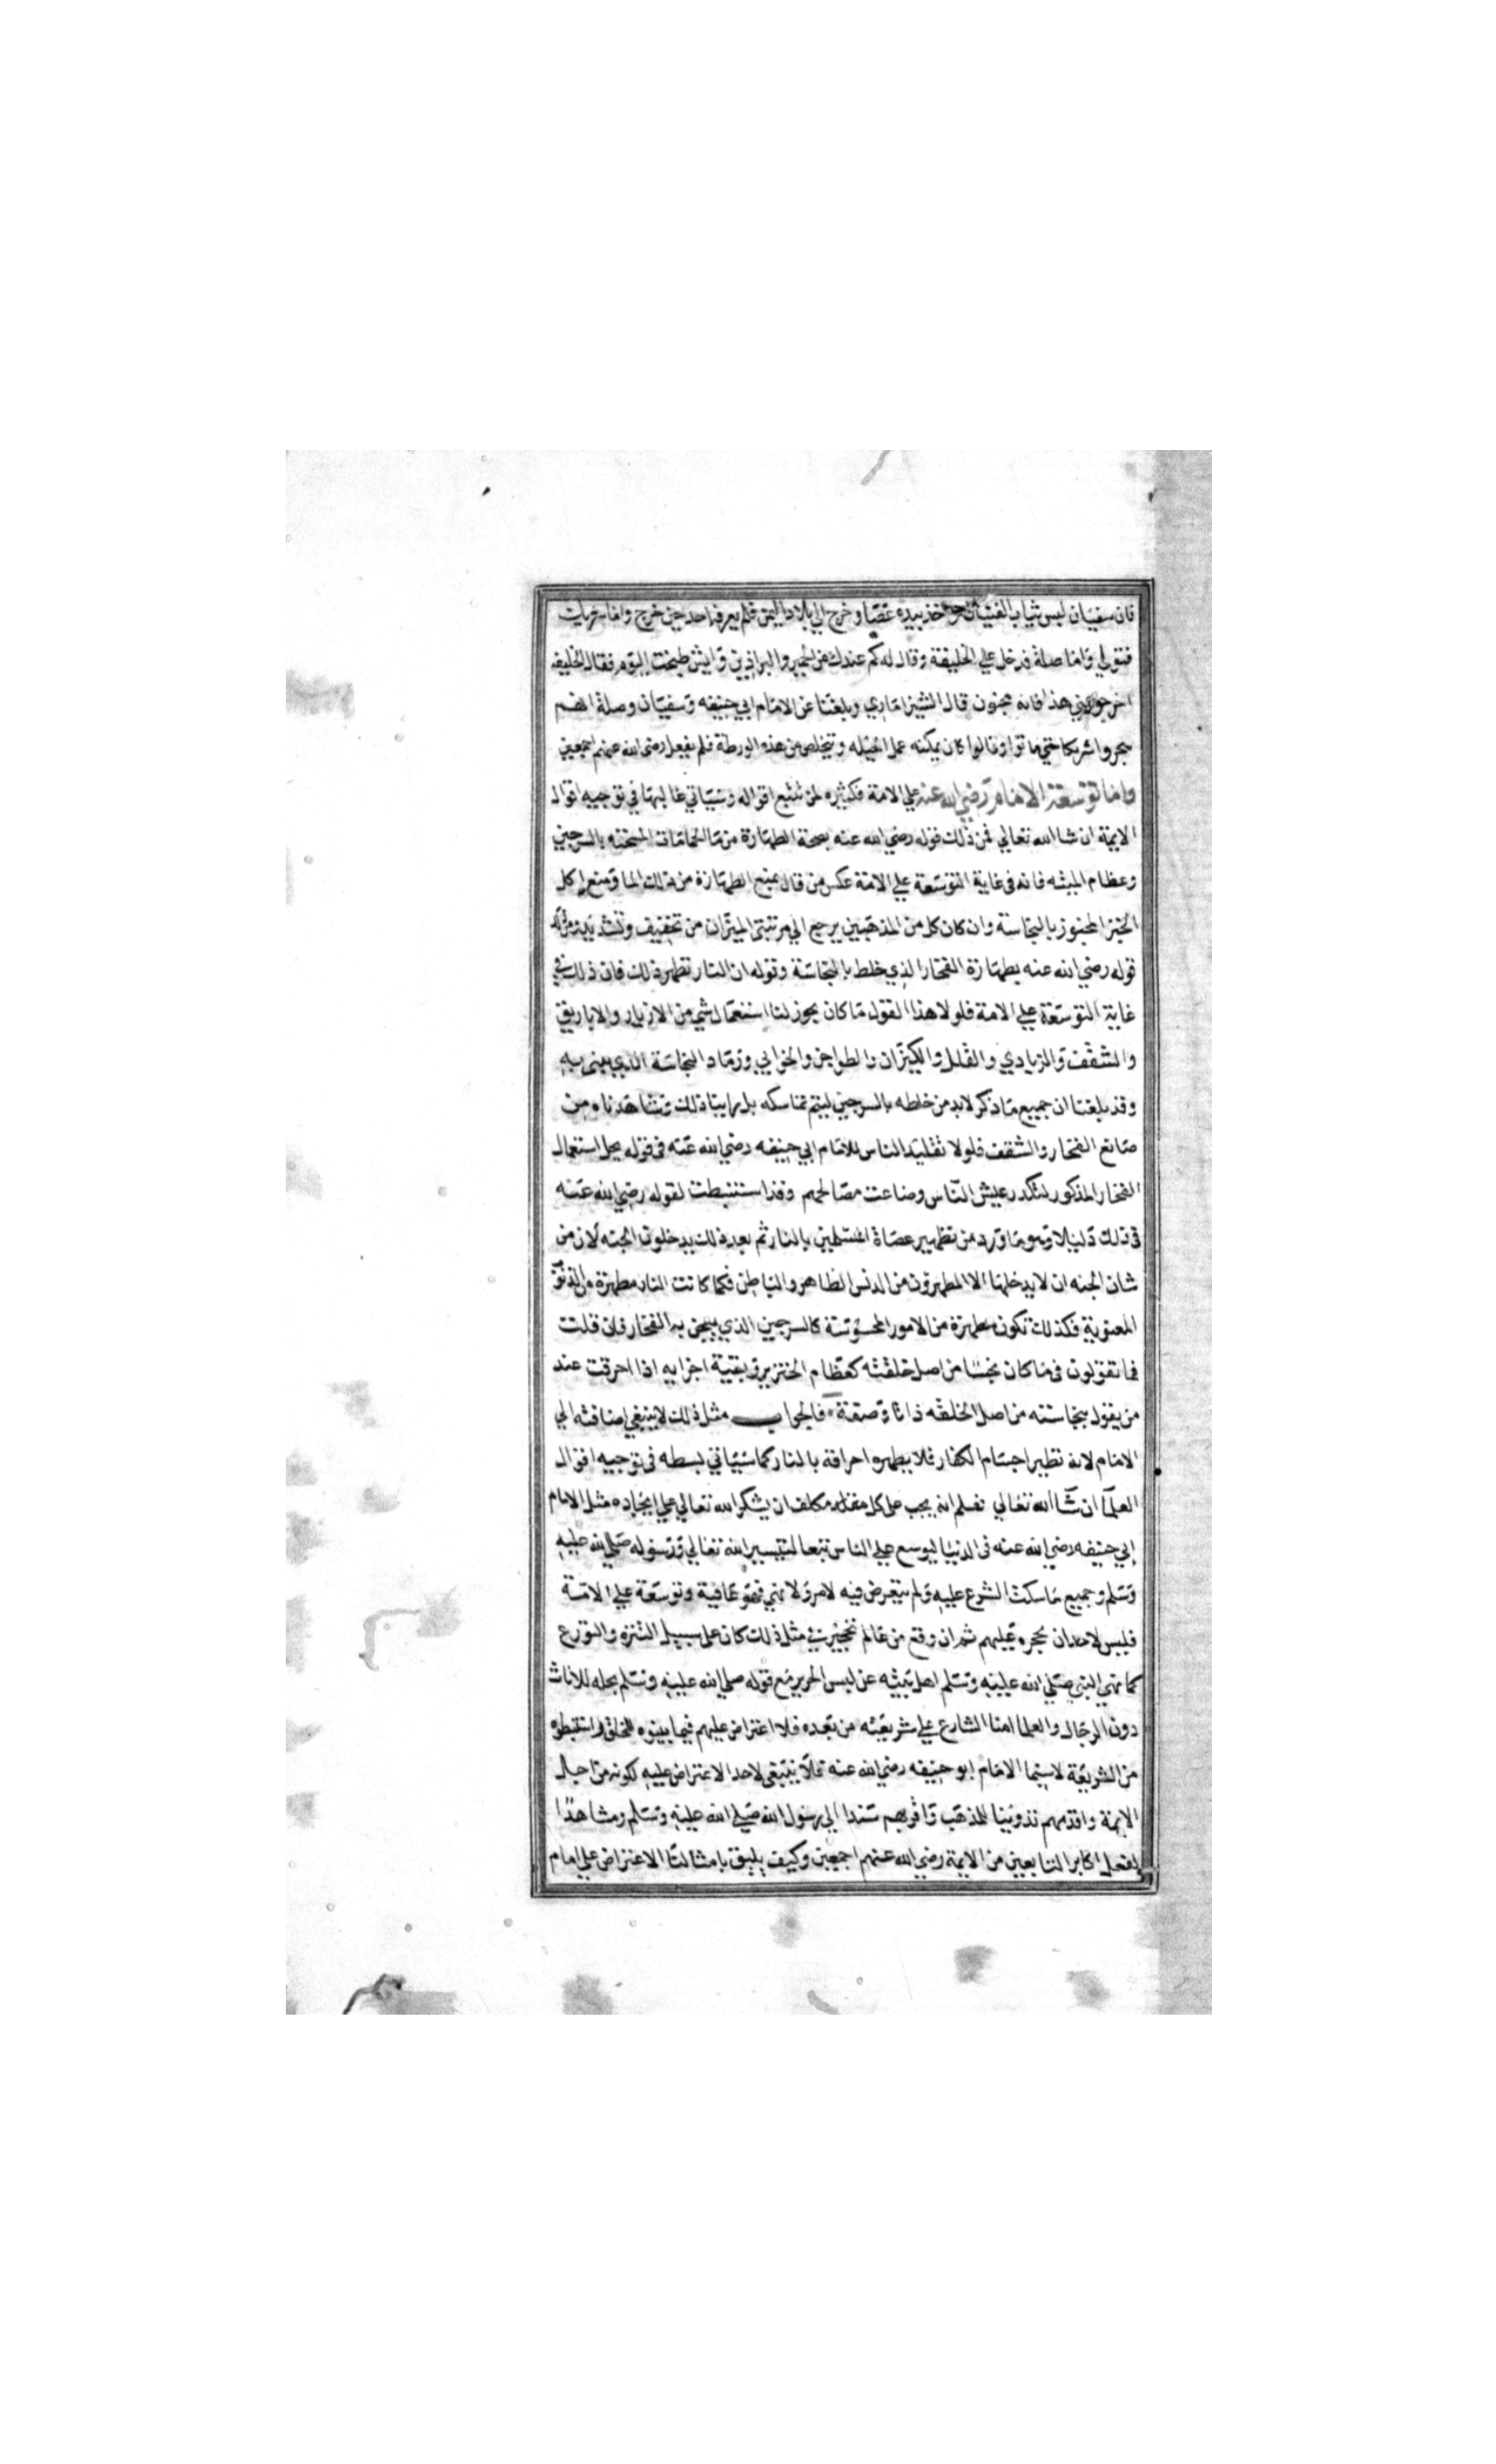 فان سفيان لبس ثياب الفتيان واخذ بيده عصا وخرج الي بلاد اليمن فلم يعرفه احد حين خرج واما شريك
فتولي واما صلة فدخل علي الخليفة وقال له كم عندك من الحمير والبراذين وايش طبخت اليوم فقال الخليفه
اخرجوه عني هذا فانه مجنون قال الشيزاماري وبلغنا عن الامام ابي حنيفه وسفيان وصلة انهم
هجروا شريكا حتي ماتوا وقالوا كان يمكنه عمل الحيله ويتخلص من هذه الورطة فلم يفعل رضي الله عنهم اجمعين
واما توسعة الامام رضي الله عنه علي الامة فكثيره لمن تتبع اقواله وسياتي غالبها في توجيه اقوال
الايمة ان شا الله تعالي فمن ذلك قوله رضي الله عنه بصحة الطهارة من ما الحمامات المسخنه بالسرجين
وعظام الميته فانه في غاية التوسعة علي الامة عكس من قال بمنع الطهارة من ذلك الما ومنع اكل
الخبز المخبوز بالنجاسة وان كان كل من المذهبين يرجع الي مرتبتي الميزان من تخفيف وتشديد ومن ذلك
قوله رضي الله عنه بطهارة الفخار الذي خلط بالنجاسة وقوله ان النار تطهر ذلك فان ذلك في
غاية التوسعة علي الامة فلولا هذا القول ما كان يجوز لنا استعمال شي من الازيار والاباريق
والشقف والزبادي والقلل والكيزان والطواجن والخوابي ورماد النجاسة الذي يبنى به
وقد بلغنا ان جميع ما ذكر لابد من خلطه بالسرجين ليتم تماسكه بل راينا ذلك وشاهدناه من
صانع الفخار والشقف فلولا تقليد الناس للامام ابي حنيفه رضي الله عنه في قوله بحل استعمال
الفخار المذكور لتكدر عيش الناس وضاعت مصالحهم وقد استنبطت لقوله رضي الله عنه
في ذلك دليلا وهو ما ورد من تطهير عصاة المسلمين بالنار ثم بعد ذلك يدخلون الجنه لان من
شان الجنه ان لا يدخلها الا المطهرون من الدنس الظاهر والباطن فكما كانت النار مطهرة من الذنوب
المعنوية فكذلك تكون مطهرة من الامور المحسوسة كالسرجين الذي يعجن به الفخار فان قلت
فما تقولون في ما كان نجسا من اصل خلقته كعظام الخنزير وبقية اجزايه اذا احرقت عند
من يقول بنجاسته من اصل الخلقه ذاتا وصفة فالجواب مثل ذلك لا ينبغي اضافته الي
الامام لانه نظير اجسام الكفار فلا يطهره احراقه بالنار كما سياتي بسطه في توجيه اقوال
العلمآ ان شآ الله تعالي فعلم انه يجب علي كل مقلد مكلف ان يشكر الله تعالي علي ايجاده مثل الامام
ابي حنيفه رضي الله عنه في الدنيا ليوسع علي الناس تبعا لتيسير الله تعالي ورسوله صلي الله عليه
وسلم وجميع ما سكت الشرع عليه ولم يتعرض فيه لامر ولا نهي فهو عافية وتوسعة علي الامة
فليس لاحد ان يحجره عليهم ثم ان وقع من عالم تحجير في مثل ذلك كان علي سبيل التنزه والتورع
كما نهي النبي صلي الله عليه وسلم اهل بيته عن لبس الحرير مع قوله صلي الله عليه وسلم بحله للاناث
دون الرجال والعلما امنا الشارع علي شريعته من بعده فلا اعتراض عليهم فيما بينوه للخلق واستنبطوه
من الشريعة لاسيما الامام ابو حنيفه رضي الله عنه فلا ينبغي لاحد الاعتراض عليه لكونه من اجل
الايمة واقدمهم تدوينا للمذهب واقربهم سندا الي رسول الله صلي الله عليه وسلم ومشاهدًا
لفعل اكابر التابعين من الايمة رضي الله عنهم اجمعين وكيف يليق بامثالنا الاعتراض علي امام